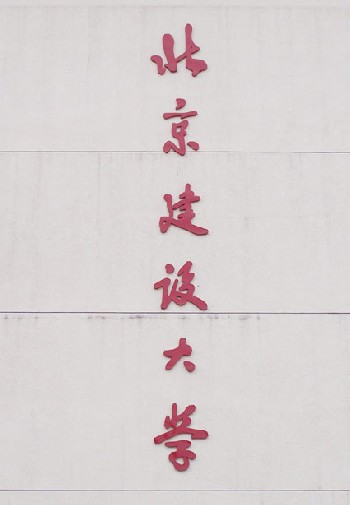 北京建设大学